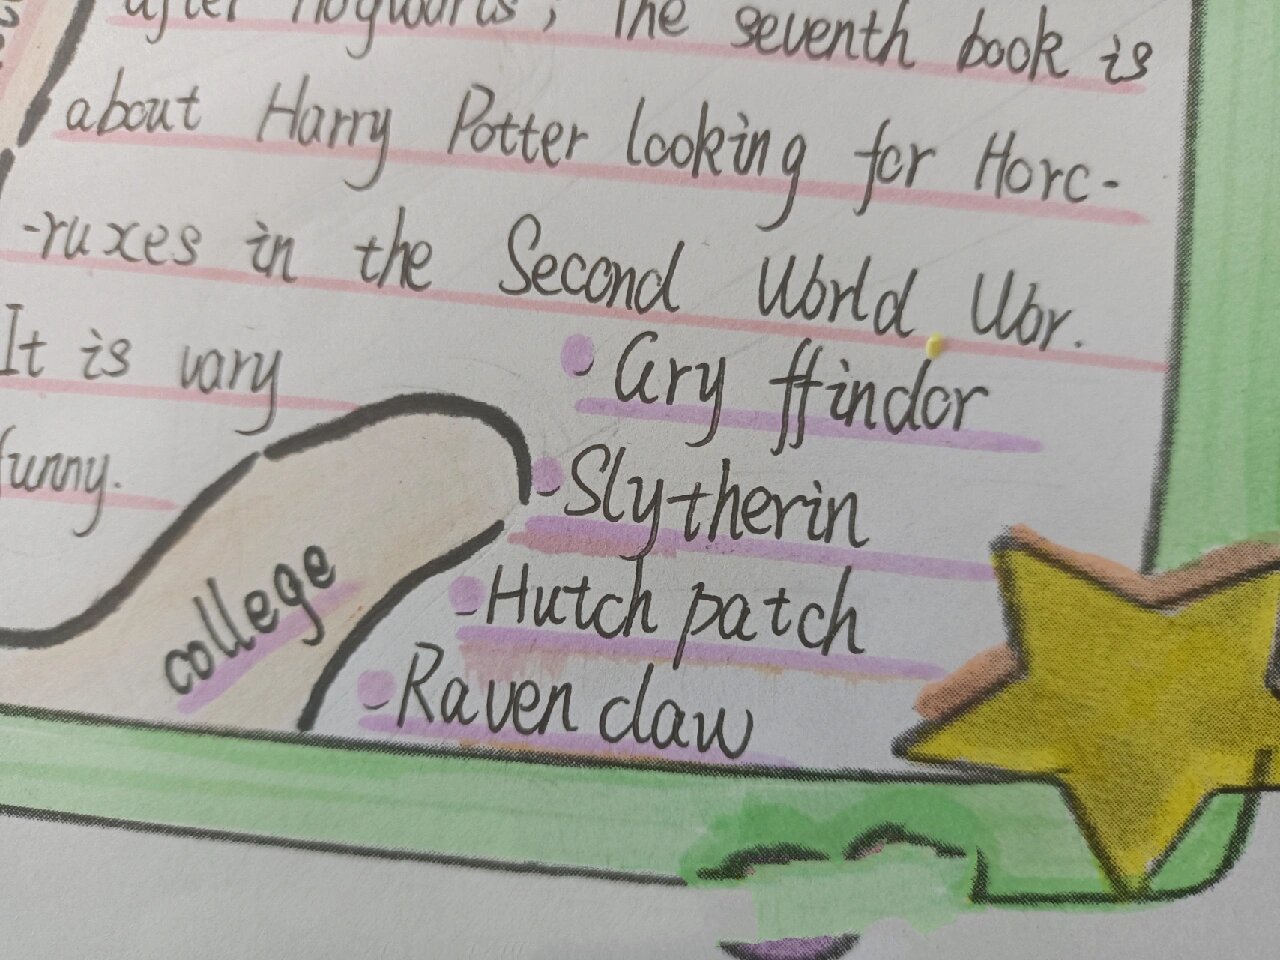 after Hogwarts; The seventh book is
about Harry Potter looking for Horc-
-ruxes in the Second World War.
It is vary
funny.
Gry ffindor
-Slytherin
-Hutch patch
-Raven claw
college